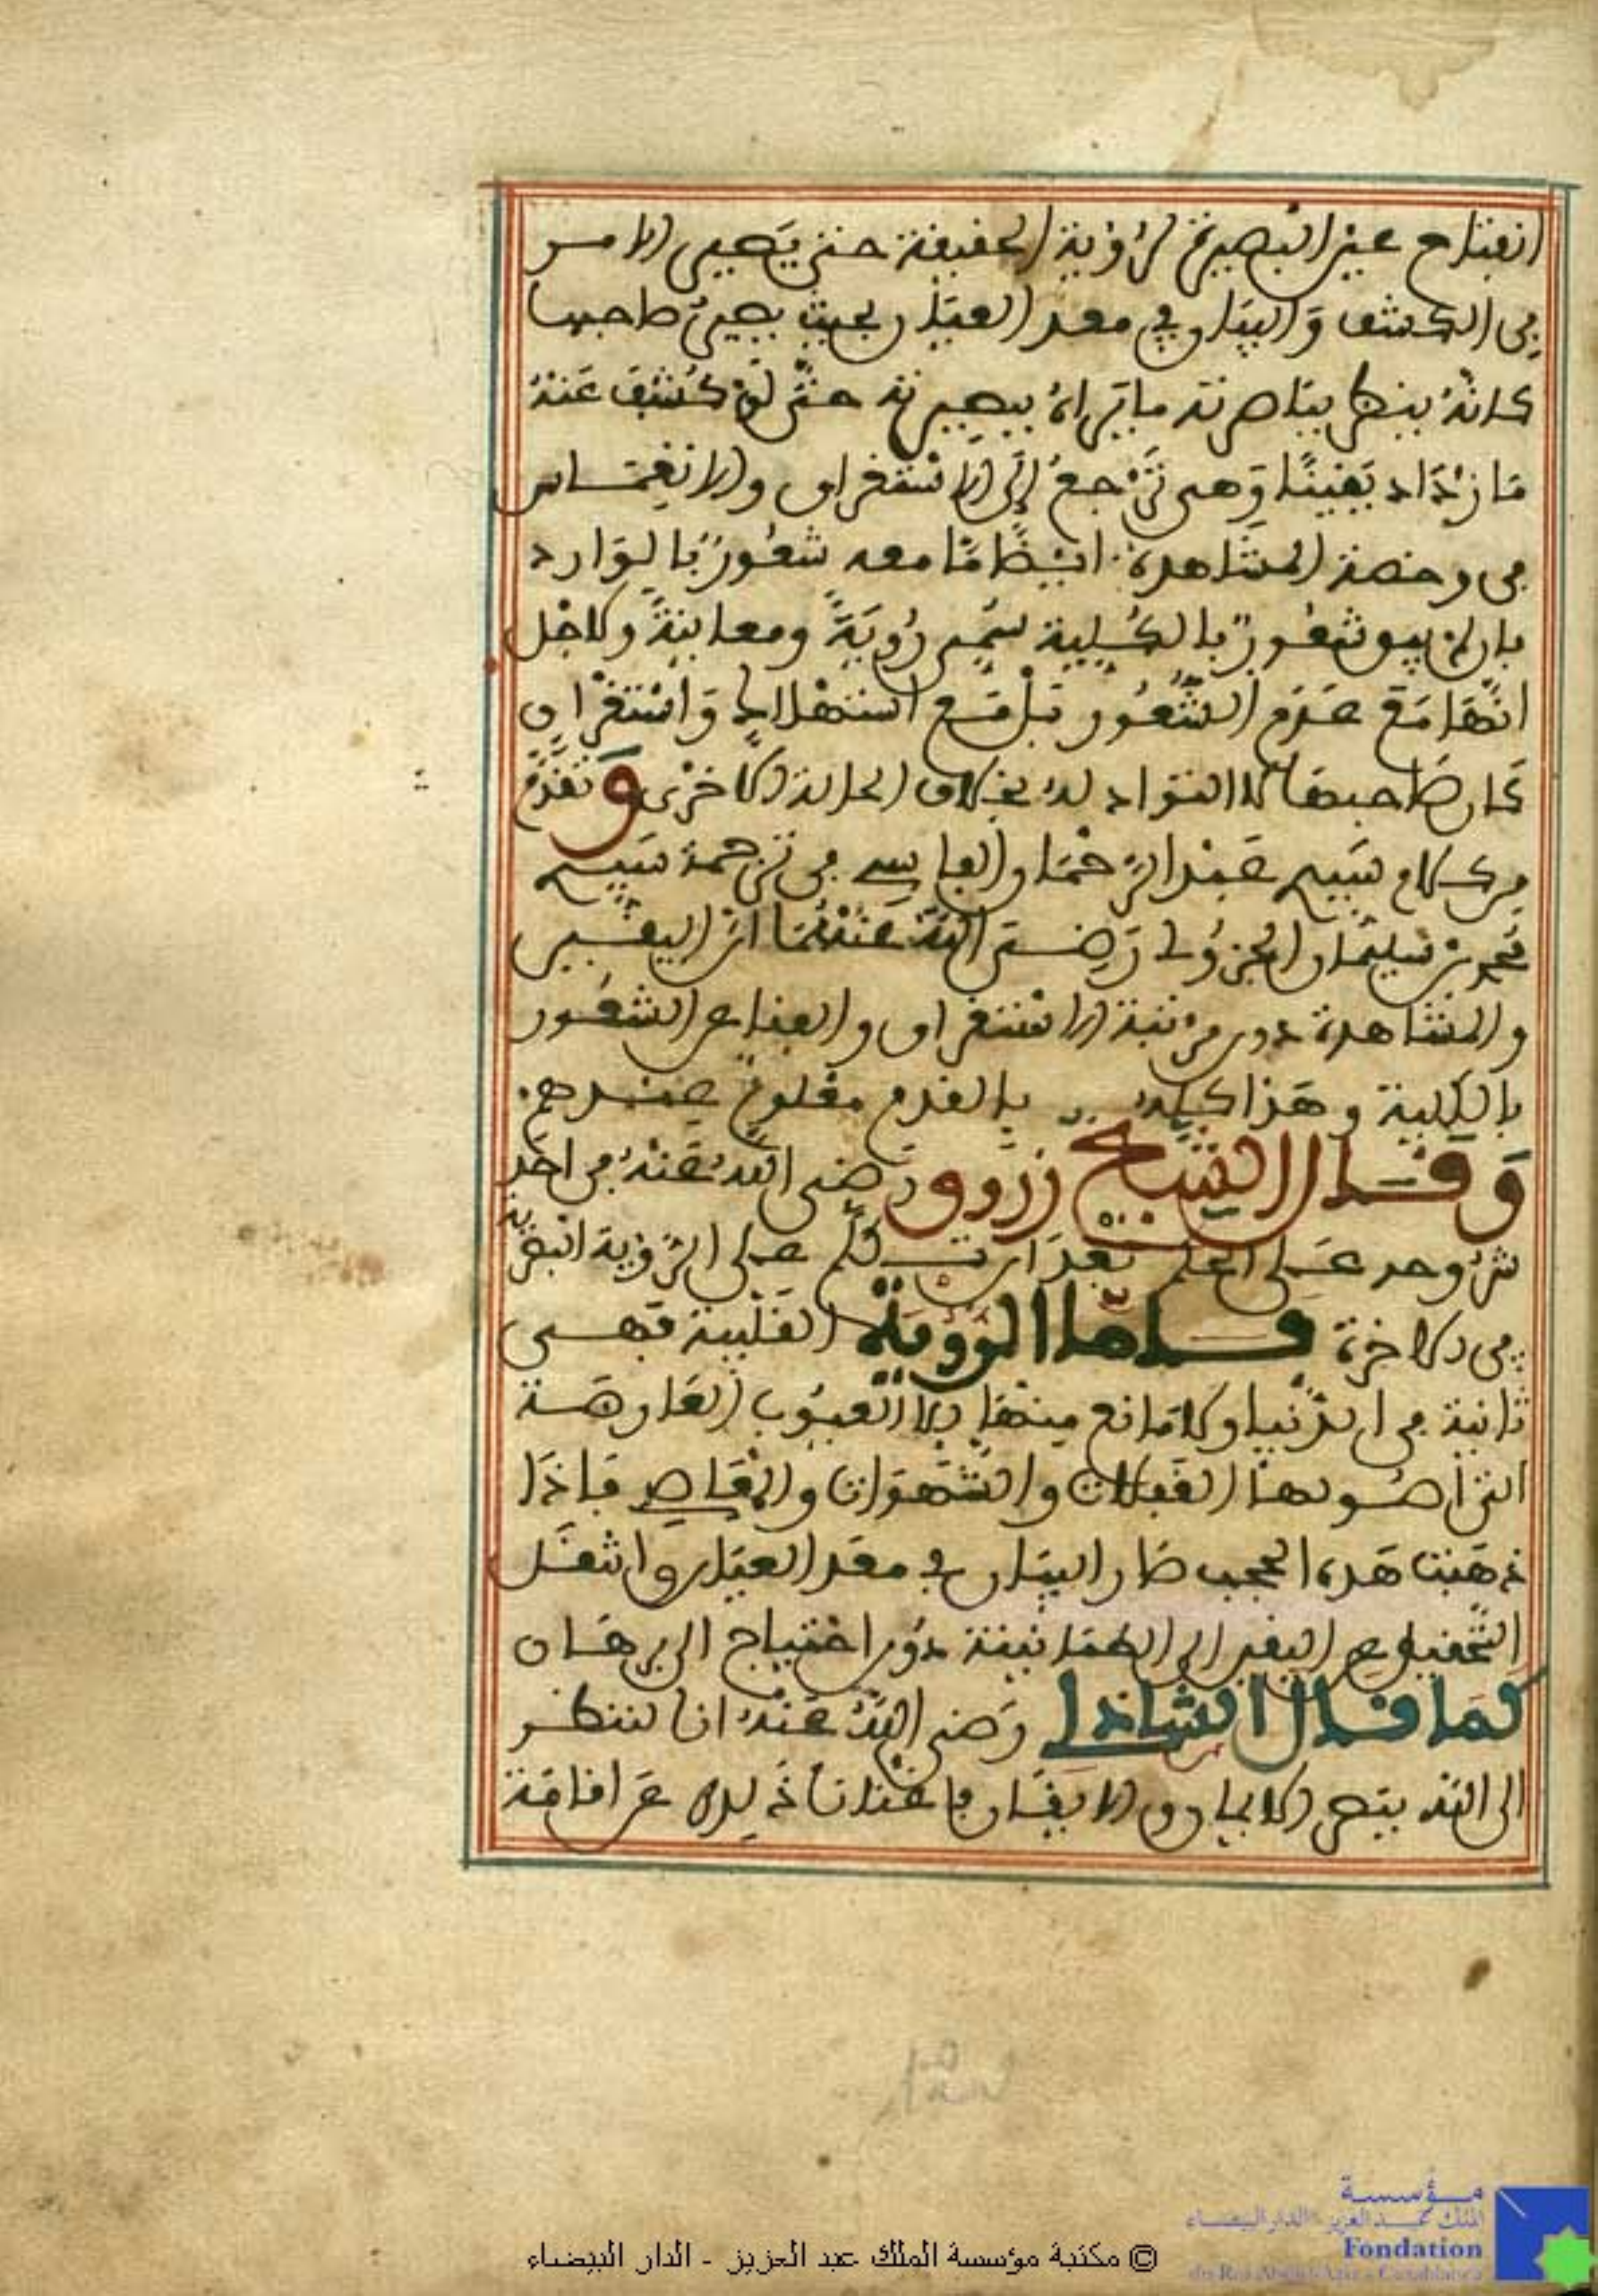 انفتاح عين البصيرة لرؤية الحقيقة حتى يصير الامر
في الكشف والبيان في معد العيان بحيث يصير صاحبها
كانه ينظر بباصرته ما يراه ببصيرته حتى لو كشف عنه
ما ازداد يقينا وهي ترجع الى الاستغراق والانغماس
في وحضة المشاهدة ايضا ما معه شعور بالوارد
فان لم يبق شعور بالكلية سمي رؤية ومعاينة ولاجل
انها مع عدم الشعور بل مع استهلاك واستغراق
كان صاحبها لا التواد له بخلاف الحالة الاخرى وتقدم
من كلام سيد عبد الرحمان الفاسي في ترجمة سيد
محمد بن سليمان الجزولي رضي الله عنهما ان اليقين
والمشاهدة دون مرتبة الاستغراق والفناء عن الشعور
بالكلية وهذا كله بالقدم معلوم عندهم
وقال الشيخ زروق رضي الله عنه في احد
شروحه على الحكم بعد ان تكلم على الرؤية البصرية
في الاخرة فاما الرؤية القلبية فهي
ثانية في الدنيا ولا مانع منها الا العيوب العارضة
التي اصولها الغفلات والشهوات والمعاصي فاذا
ذهبت هذه الحجب صار البيان في معد العيان وانتقل
التحقيق عن اليقين الى الطمانينة دون احتياج الى برهان
كما قال الشاذلي رضي الله عنه انا لننظر
الى الله ببصر الايمان والايقان فاغنانا ذلك عن اقامة
© مكتبة مؤسسة الملك عبد العزيز - الدار البيضاء
مؤسسة
الملك عبد العزيز الدار البيضاء
Fondation
du Roi Abdul-Aziz - Casablanca